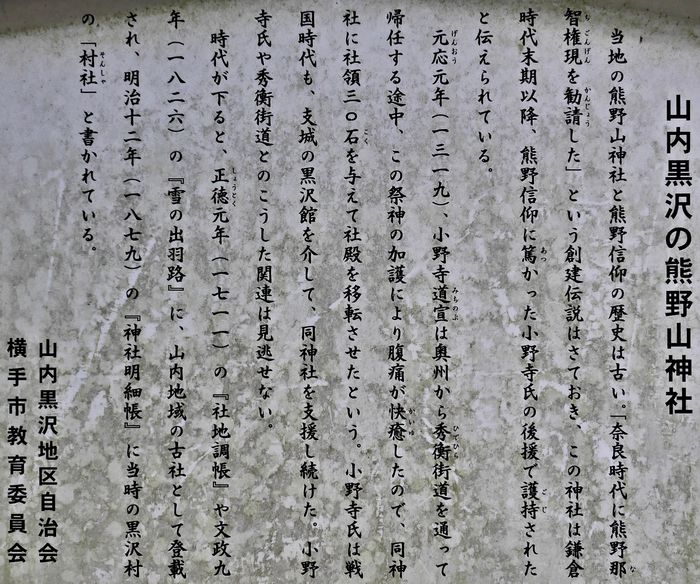 山内黒沢の熊野山神社
当地の熊野山神社と熊野信仰の歴史は古い。「奈良時代に熊野那
智権現を勧請した」という創建伝説はさておき、この神社は鎌倉
時代末期以降、熊野信仰に篤かった小野寺氏の後援で護持された
と伝えられている。
元応元年（一三一九）、小野寺道宣は奥州から秀衡街道を通って
帰任する途中、この祭神の加護により腹痛が快癒したので、同神
社に社領三〇石を与えて社殿を移転させたという。小野寺氏は戦
国時代も、支城の黒沢館を介して、同神社を支援し続けた。小野
寺氏や秀衡街道とのこうした関連は見逃せない。
時代が下ると、正徳元年（一七一一）の『社地調帳』や文政九
年（一八二六）の『雪の出羽路』に、山内地域の古社として登載
され、明治十二年（一八七九）の『神社明細帳』に当時の黒沢村
の「村社」と書かれている。
山内黒沢地区自治会
横手市教育委員会